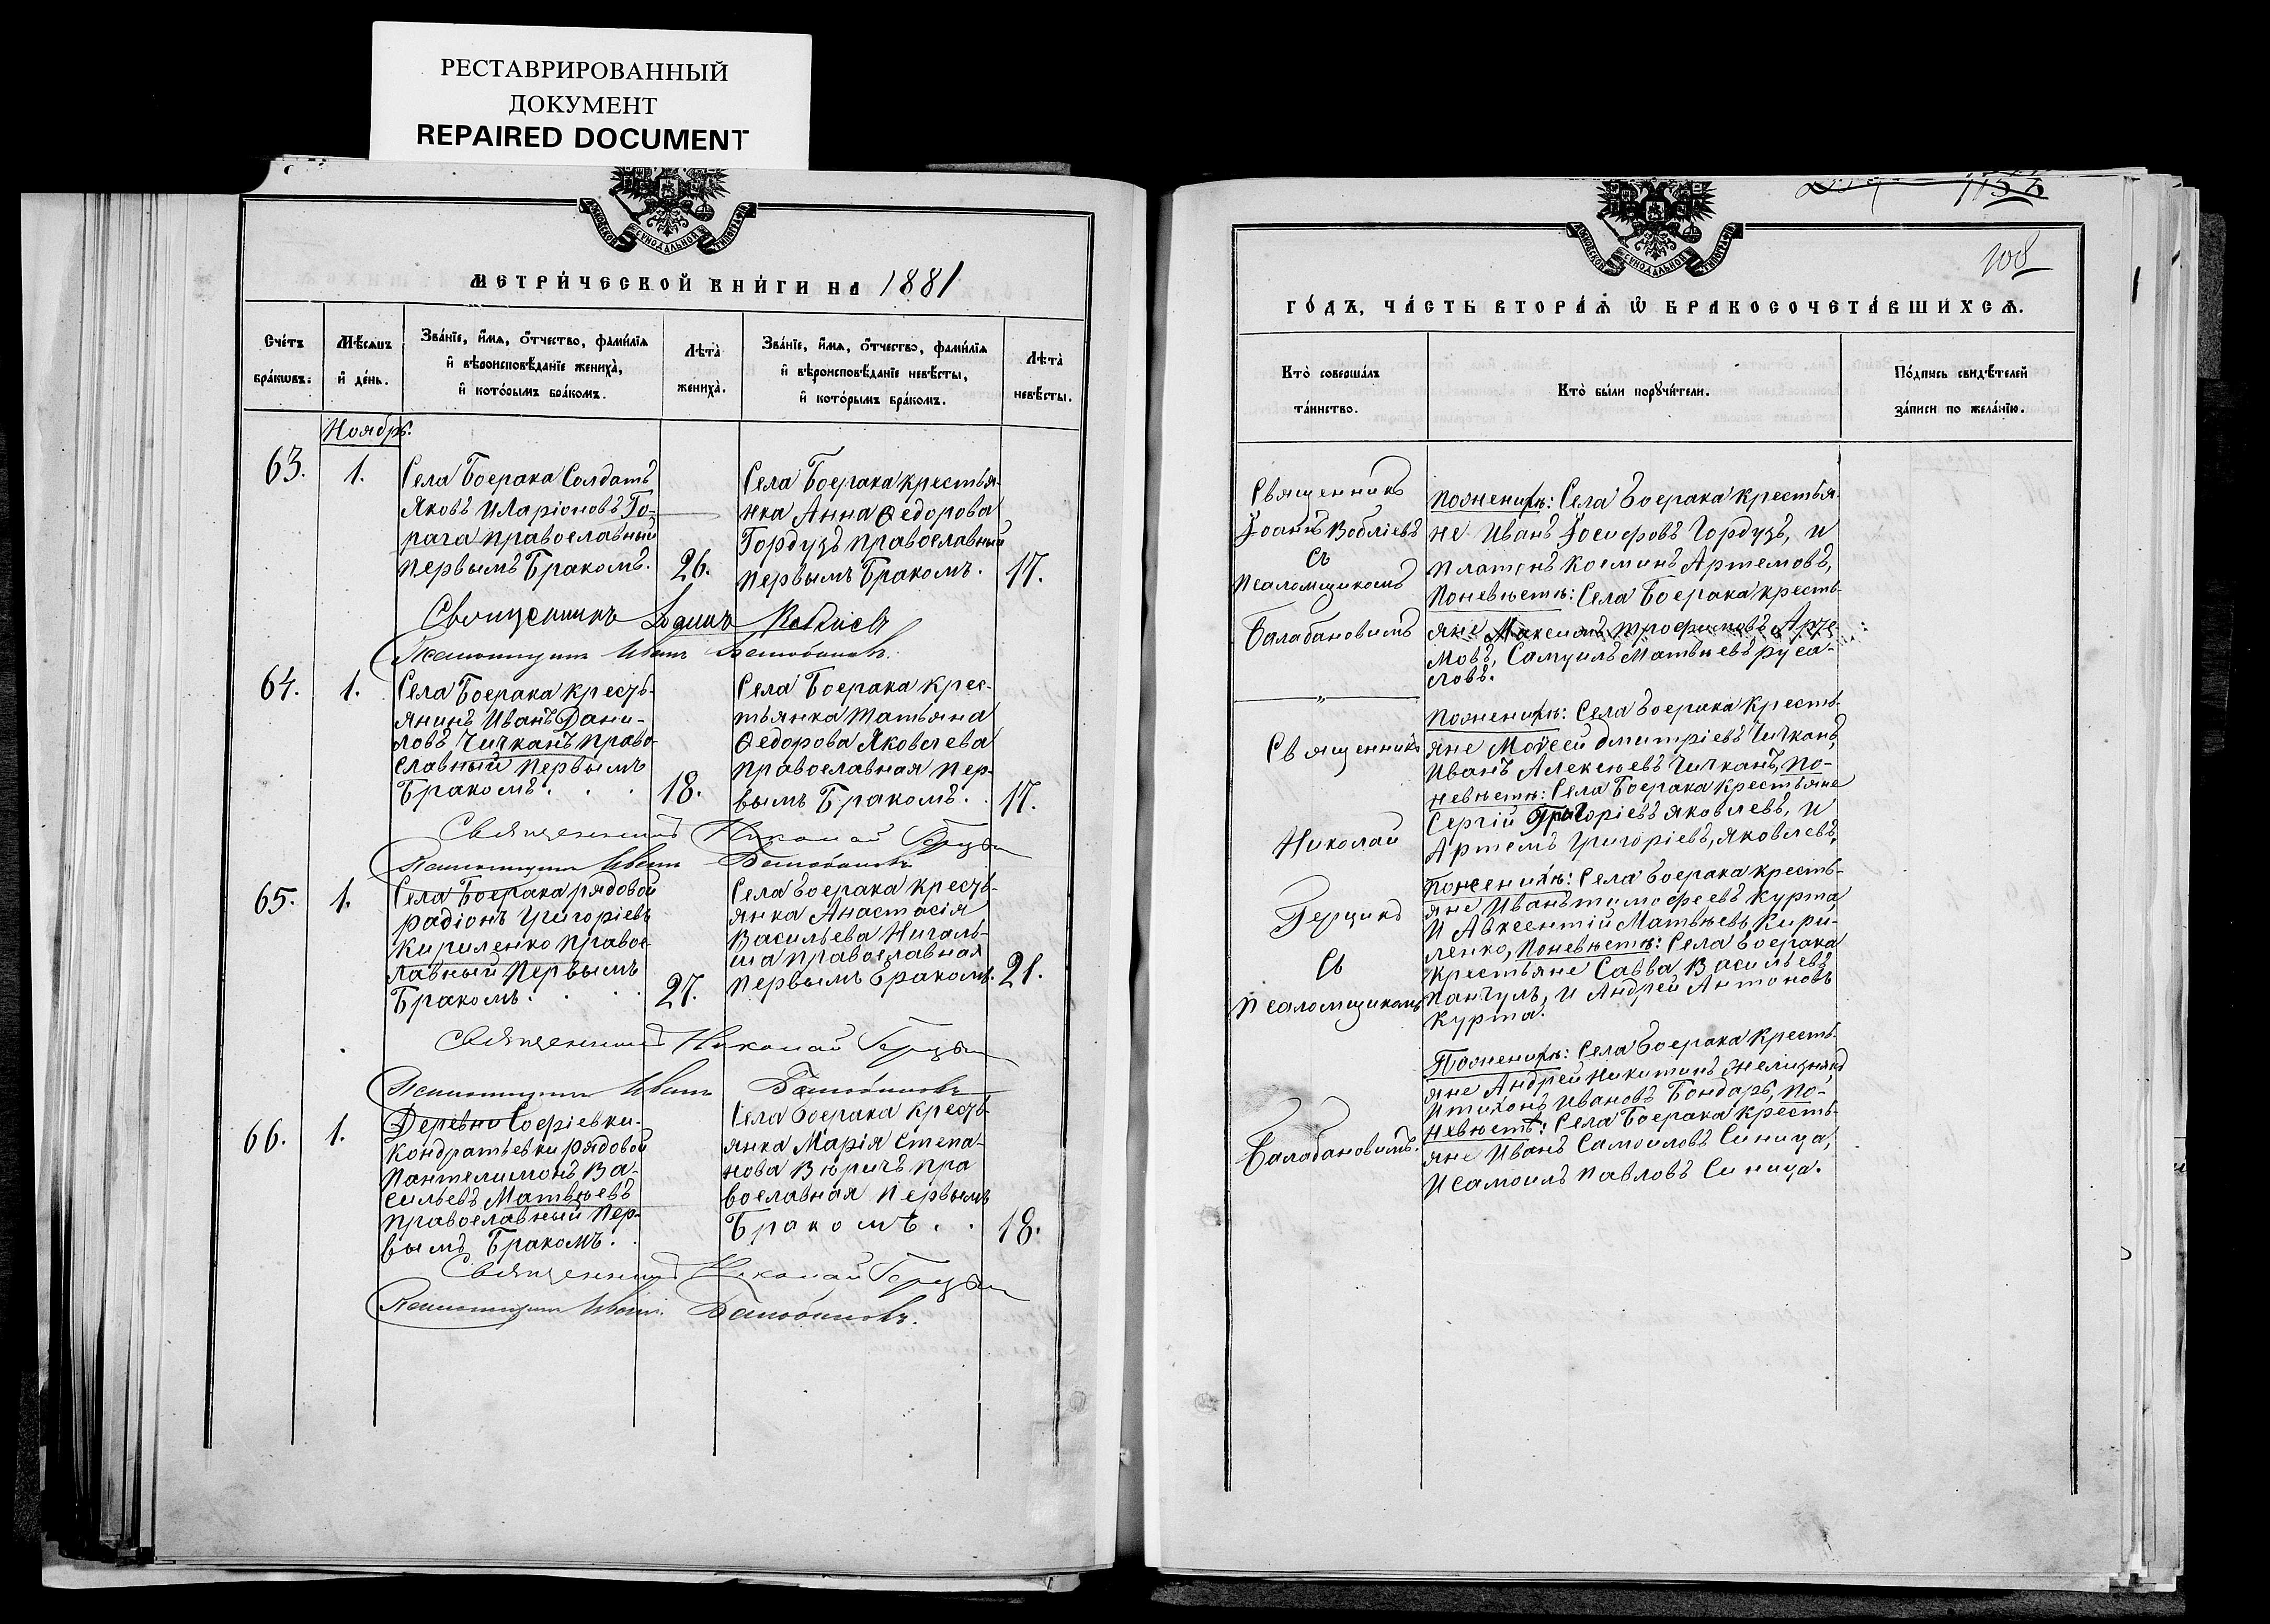 РЕСТАВРИРОВАННЫЙ
ДОКУМЕНТ
REPAIRED DOCUMENT
МОСКОВСКОЙ СУНОДАЛЬНОЙ ТИПОГРАФІИ
МЕТРИ́ЧЕСКОЙ КНИ́ГИ НА 1881
Сче́тъ
бра́кѡвъ:
Мѣ́сяцъ
и҆ де́нь.
Зва́нїе, и҆́мѧ, ѻ҆́тчество, фами́лїѧ
и҆ вѣроисповѣ́данїе жениха̀,
и҆ кото́рымъ бра́комъ.
Лѣта̀
жениха̀.
Зва́нїе, и҆́мѧ, ѻ҆́тчество, фами́лїѧ
и҆ вѣроисповѣ́данїе невѣ́сты,
и҆ кото́рымъ бра́комъ.
Лѣта̀
невѣ́сты.
Ноябрь.
63.
1.
Села Боерака Солдатъ
Яковъ Иларіоновъ Го-
рага православный
первымъ Бракомъ.
26.
Села Боерака крестья-
нка Анна Ѳедорова
Гордузъ православный
первымъ Бракомъ.
17.
Священникъ Іоаннъ Воблієвъ
Псаломщикъ Иванъ Балабановъ.
64.
1.
Села Боерака кресть-
янинъ Иванъ Дани-
ловъ Чичканъ право-
славный первымъ
Бракомъ.
18.
Села Боерака крес-
тьянка Татьяна
Ѳедорова Яковлева
православная пер-
вымъ Бракомъ.
17.
Священникъ Николай
Псаломщикъ Иванъ Балабановъ
65.
1.
Села Боерака рядовой
Радіонъ Григоріевъ
Кириленко правос-
лавный первымъ
Бракомъ.
27.
Села Боерака кресть-
янка Анастасія
Васильева Нигаль-
ша православная
первымъ бракомъ.
21.
Священникъ Николай
Псаломщикъ Иванъ Балабановъ
66.
1.
Деревни Софіевки-
Кондратьевки рядовой
Пантелимонъ Ва-
сильевъ Матвѣевъ
православный пер-
вымъ Бракомъ.
Села Боерака кресть-
янка Марія Степа-
нова Вюричъ пра
вославная первымъ
Бракомъ.
18.
Священникъ Николай
Псаломщикъ Иванъ Балабановъ.
МОСКОВСКОЙ СУНОДАЛЬНОЙ ТИПОГРАФІИ
108
ГО́ДЪ, ЧА́СТЬ ВТОРА́Ѧ Ѡ҆ БРАКОСОЧЕТА́ВШИХСѦ.
Кто̀ соверша́лъ
та́инство.
Кто̀ бы́ли порꙋчи́тели.
По́дпись свидѣ́телей
за́писи по жела́нїю.
Священникъ
Іоаннъ Воблієвъ
съ
псаломщикомъ
Балабановимъ
По женихѣ: Села Боерака крестья-
не Иванъ Іосифовъ Гордузъ, и
Платонъ Косминъ Артемовъ,
По невѣстѣ: Села Боерака кресть-
яне Максимъ Трофимовъ Арте-
мовъ, Самуилъ Матвѣевъ Руса-
ловъ.
„
Священникъ
Николай
съ
псаломщикомъ
Балабановимъ.
По женихѣ: Села Боерака Кресть-
яне Моѵсей Дмитріевъ Чичканъ,
Иванъ Алексѣевъ Чичканъ, по-
невѣстѣ: Села Боерака Крестьяне
Сергій Григоріевъ Яковлевъ, и
Артемъ Григоріевъ, Яковлевъ,
По женихѣ: Села Боерака кресть-
яне Иванъ Тимофеевъ Курта,
и Авксентій Матвѣевъ Кири-
ленко, По невѣстѣ: Села Боерака
крестьяне Савва Васильевъ
Панчулъ, и Андрей Антоновъ
Курта.
По женихѣ: Села Боерака Кресть-
яне Андрей Никитинъ Желизнякъ
и Тихонъ Ивановъ Бондарь, по-
невѣстѣ: Села Боерака кресть-
яне Иванъ Самоиловъ Синица,
и Самоилъ Павловъ Синица.